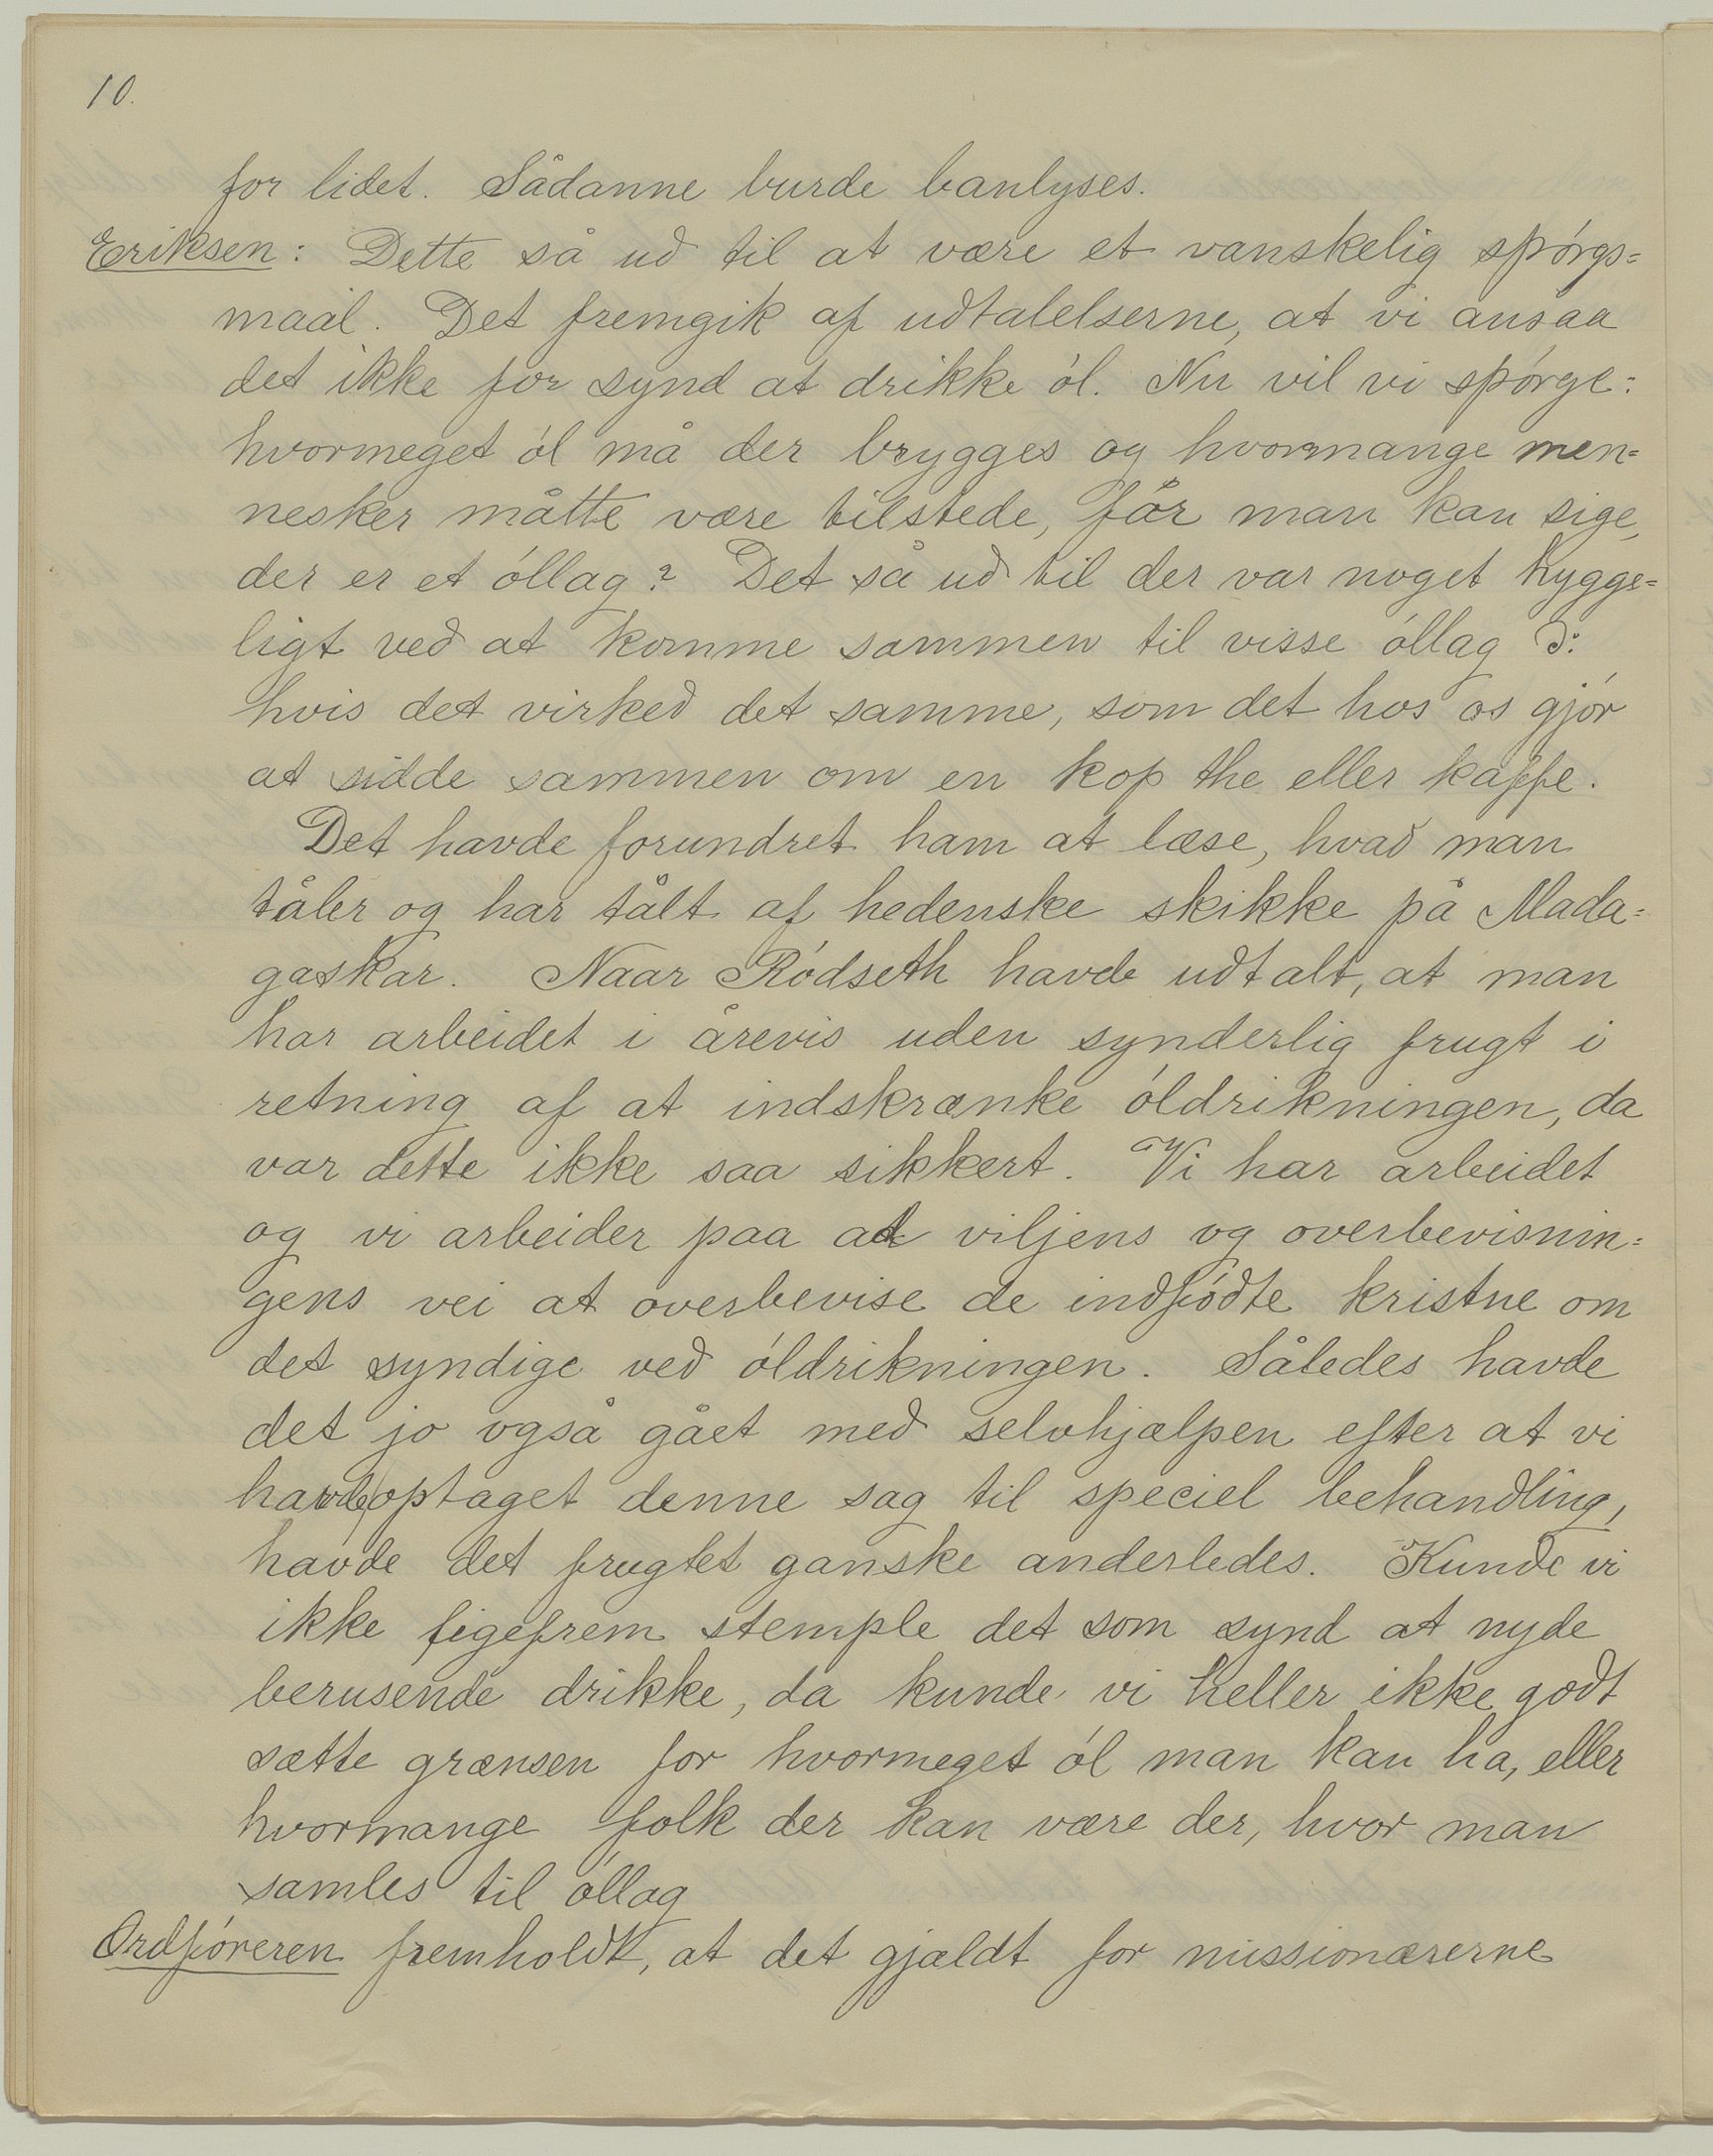 10.
for lidet. Sådanne burde banlyses.
Eriksen: Dette så ud til at være et vanskelig spórgs=
maal. Det fremgik af udtalelserne, at vi ansaa
det ikke for synd at drikke ól. Nu vil vi spórge:
hvormeget ól må der brygges og hvormange men=
nesker måtte være tilstede, fór man kan sige,
der er et óllag? Det så ud til der var noget hygge=
ligt ved at komme sammen til visse óllag ɔ:
hvis det virked det samme, som det hos os gjór
at sidde sammen om en kop the eller kaffe.
Det havde forundret ham at læse, hvad man
tåler og har tålt af hedenske skikke på Mada=
gaskar. Naar Ródseth havde udtalt, at man
har arbeidet i årevis uden synderlig frugt i
retning af at indskrænke óldrikningen, da
var dette ikke saa sikkert. Vi har arbeidet
og vi arbeider paa ad viljens og overbevisnin=
gens vei at overbevise de indfódte kristne om
det syndige ved óldrikningen. Således havde
det jo også gået med selvhjælpen efter at vi
havde optaget denne sag til speciel behandling,
havde det frugtet ganske anderledes. Kunde vi
ikke ligefrem stemple det som synd at nyde
berusende drikke, da kunde vi heller ikke godt
sætte grænsen for hvormeget ól man kan ha, eller
hvormange folk der kan være der, hvor man
samles til óllag
Ordfóreren fremholdt, at det gjældt for missionærerne